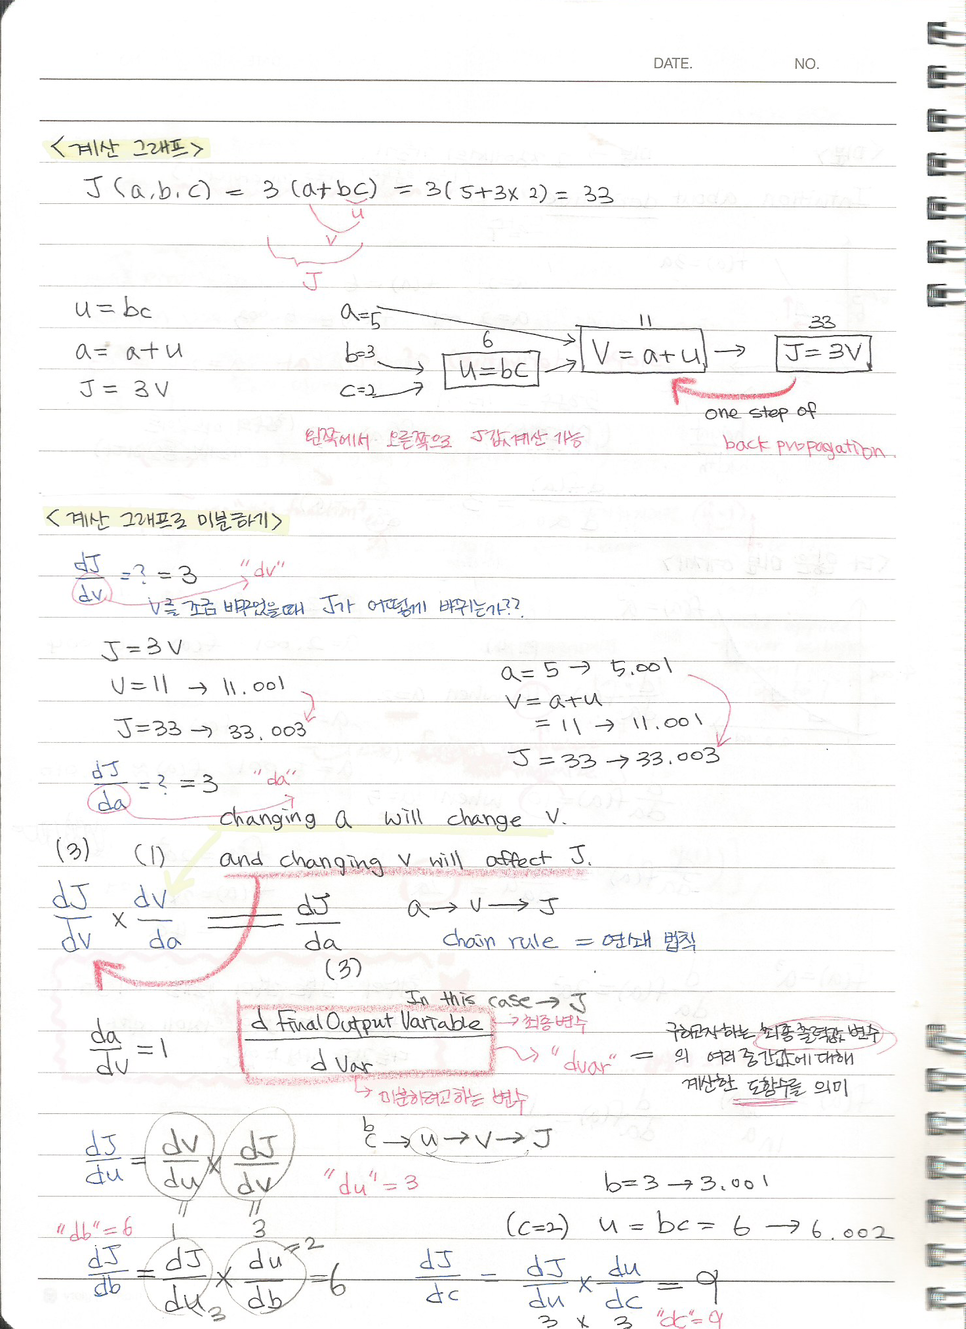 DATE. NO.
<계산 그래프>
J(a,b,c) = 3(a+bc) = 3(5+3×2) = 33
u
v
J
u = bc
a = a+u
J = 3V
a=5
b=3
c=2
6
u=bc
11
V = a+u
33
J=3V
one step of
back propagation
왼쪽에서 오른쪽으로 J값 계산 가능
<계산 그래프로 미분하기>
dJ/dv = ? = 3 "dv"
V를 조금 바꾸었을때 J가 어떻게 바뀌는가??
J = 3V
V = 11 → 11.001
J = 33 → 33.003
a = 5 → 5.001
V = a+u
= 11 → 11.001
J = 33 → 33.003
dJ/da = ? = 3 "da"
changing a will change V.
and changing V will affect J.
(3) (1)
dJ/dv × dv/da = dJ/da
(3)
a → V → J
chain rule = 연쇄 법칙
da/dv = 1
In this case → J
d Final Output Variable
d Var
→ 최종변수
→ 미분하려고하는 변수
"dvar" = 구하고자하는 최종 출력값 변수
의 여러 중간값에 대해
계산한 도함수를 의미
dJ/du = dv/du × dJ/dv
1 3
b
c → u → V → J
"du" = 3
b = 3 → 3.001
(c=2) u = bc = 6 → 6.002
"db" = 6
dJ/db = dJ/du 3 × du/db =2 = 6
dJ/dc = dJ/du × du/dc = 9
3 × 3 "dc" = 9